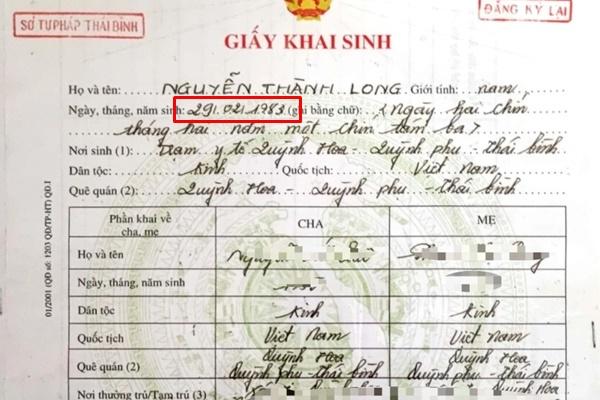 SỞ TƯ PHÁP THÁI BÌNH
ĐĂNG KÝ LẠI
GIẤY KHAI SINH
Họ và tên: NGUYỄN THÀNH LONG Giới tính: nam
Ngày, tháng, năm sinh: 29/02/1983 (ghi bằng chữ) (Ngày hai chín
tháng hai năm một chín tám ba)
Nơi sinh (1): Trạm y tế Quỳnh Hoa - Quỳnh phụ - thái bình
Dân tộc: Kinh Quốc tịch: Việt Nam
Quê quán (2): Quỳnh Hoa - Quỳnh phụ - thái bình
Phần khai về cha, mẹ CHA MẸ
Họ và tên Nguyễn
Ngày, tháng, năm sinh
Dân tộc Kinh Kinh
Quốc tịch Việt Nam Việt Nam
Quỳnh Hoa Quỳnh Hoa
Quê quán (2) Quỳnh phụ - thái bình Quỳnh phụ - thái bình
Nơi thường trú/Tạm trú (3) Quỳnh Hoa
01/2001 (QĐ số: 1203 QĐ/TP-HT) QĐ.1